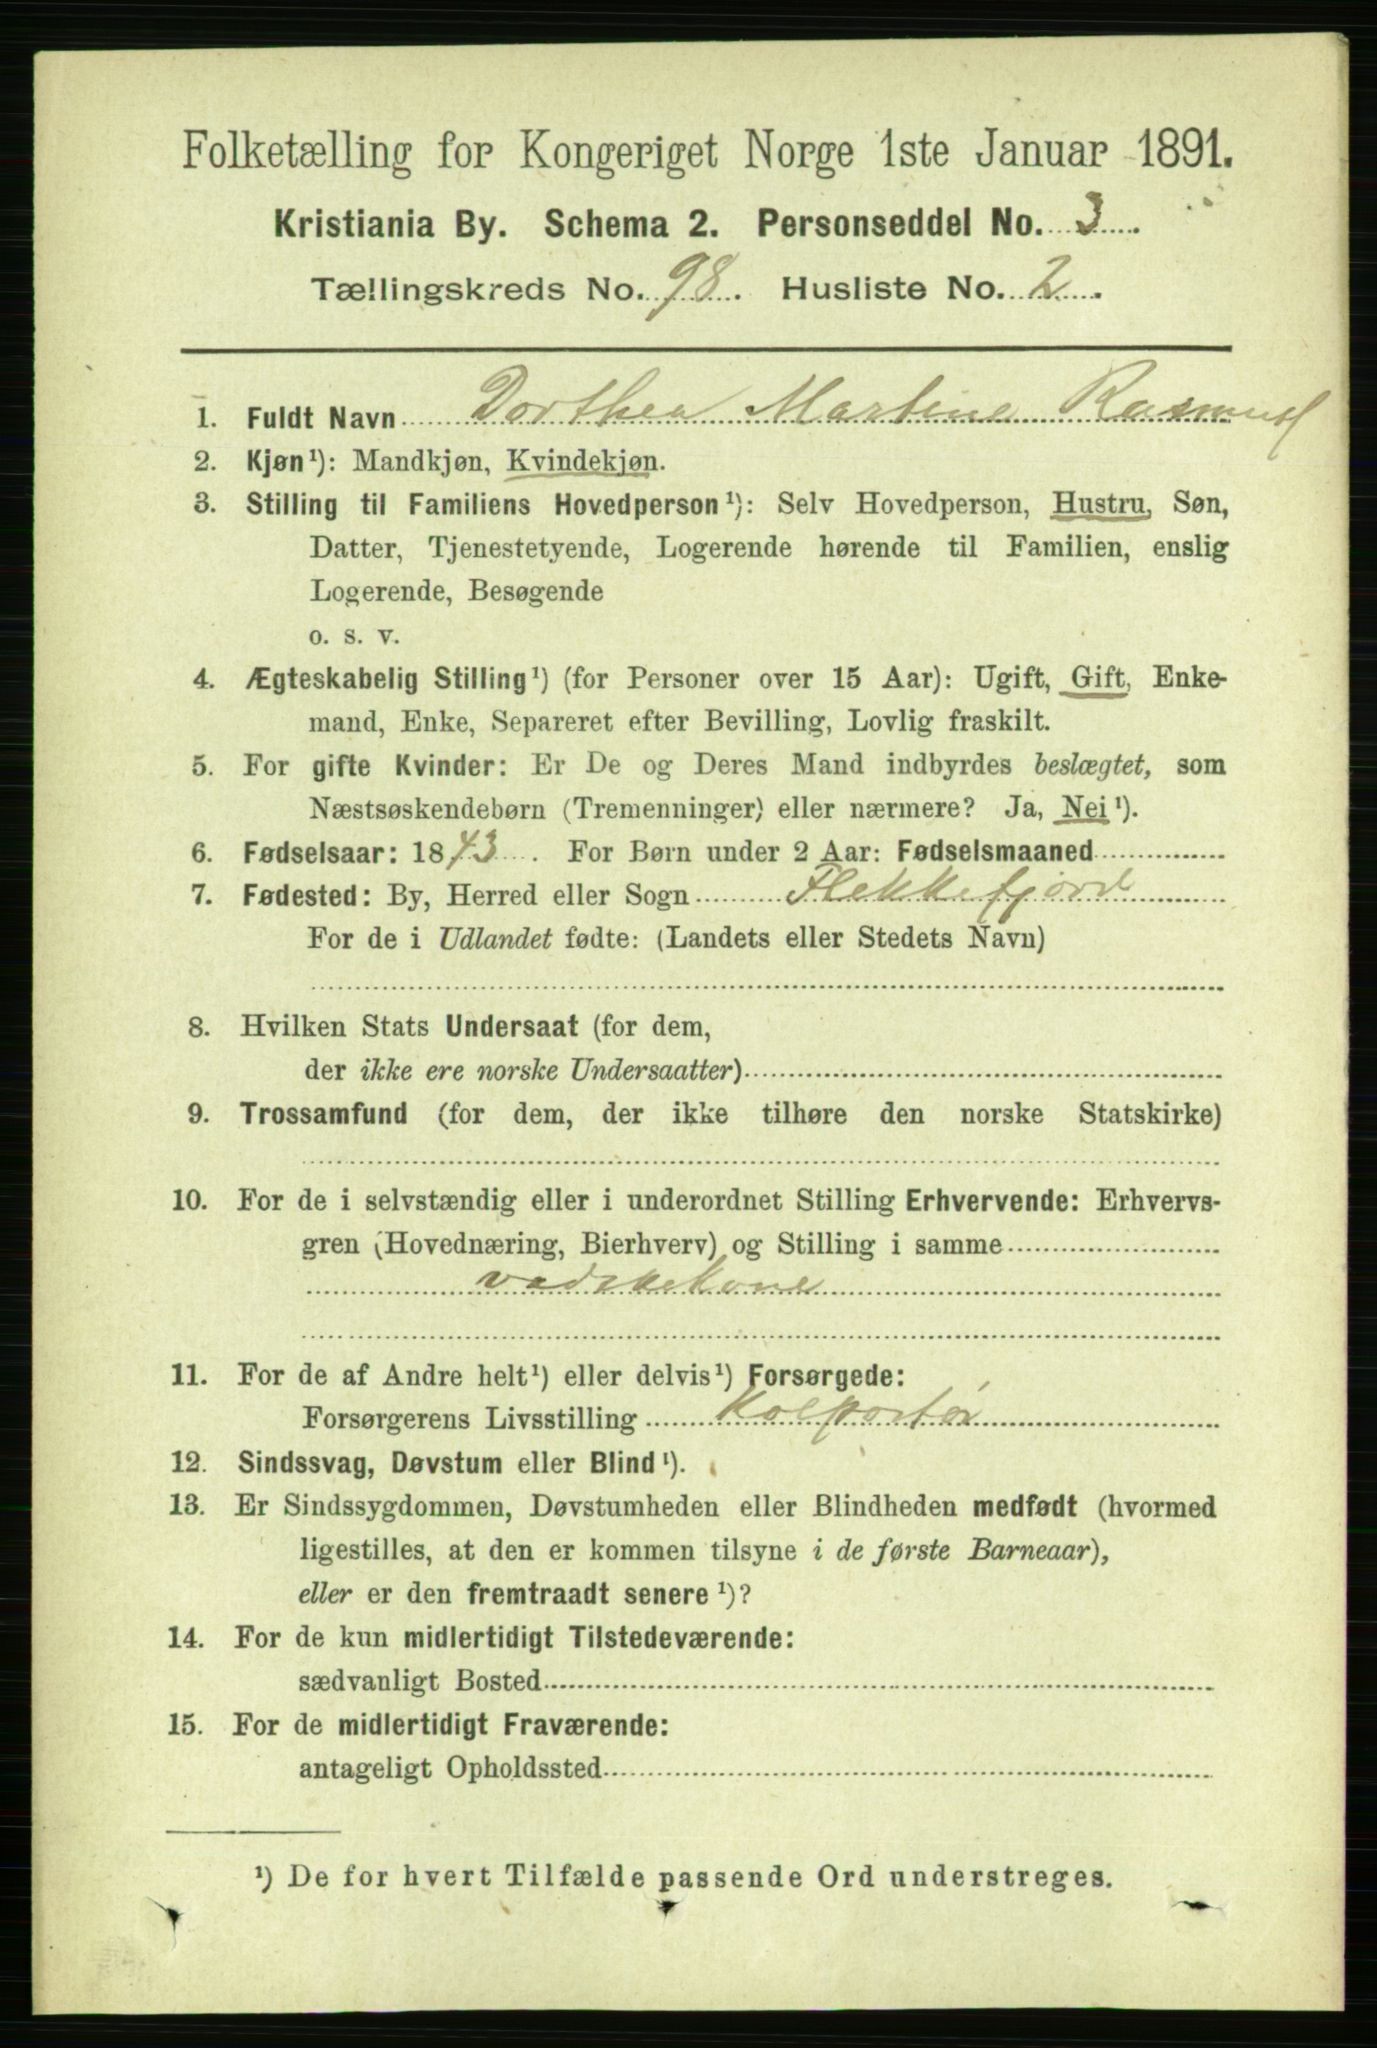 Folketælling for Kongeriget Norge 1ste Januar 1891.
Kristiania By. Schema 2. Personseddel No. 3.
Tællingskreds No. 98. Husliste No. 2.
1. Fuldt Navn Dorthea Martine Rasmuss
2. Kjøn¹): Mandkjøn, Kvindekjøn.
3. Stilling til Familiens Hovedperson¹): Selv Hovedperson, Hustru, Søn,
Datter, Tjenestetyende, Logerende hørende til Familien, enslig
Logerende, Besøgende
o. s. v.
4. Ægteskabelig Stilling¹) (for Personer over 15 Aar): Ugift, Gift, Enke-
mand, Enke, Separeret efter Bevilling, Lovlig fraskilt.
5. For gifte Kvinder: Er De og Deres Mand indbyrdes beslægtet, som
Næstsøskendebørn (Tremenninger) eller nærmere? Ja, Nei¹).
6. Fødselsaar: 1843. For Børn under 2 Aar: Fødselsmaaned
7. Fødested: By, Herred eller Sogn Flekkefjord
For de i Udlandet fødte: (Landets eller Stedets Navn)
8. Hvilken Stats Undersaat (for dem,
der ikke ere norske Undersaatter)
9. Trossamfund (for dem, der ikke tilhøre den norske Statskirke)
10. For de i selvstændig eller i underordnet Stilling Erhvervende: Erhvervs-
gren (Hovednæring, Bierhverv) og Stilling i samme
vadskekone
11. For de af Andre helt¹) eller delvis¹) Forsørgede:
Forsørgerens Livsstilling Kolportør
12. Sindssvag, Døvstum eller Blind¹).
13. Er Sindssygdommen, Døvstumheden eller Blindheden medfødt (hvormed
ligestilles, at den er kommen tilsyne i de første Barneaar),
eller er den fremtraadt senere¹)?
14. For de kun midlertidigt Tilstedeværende:
sædvanligt Bosted
15. For de midlertidigt Fraværende:
antageligt Opholdssted
¹) De for hvert Tilfælde passende Ord understreges.